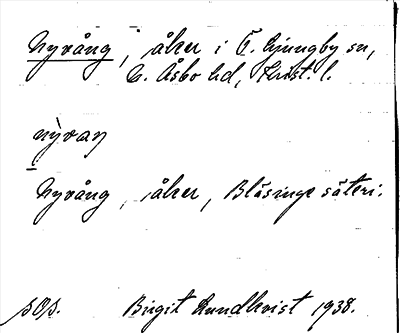 Nyvång, åker i Ö. Ljungby sn,
N. Åsbo hd, Krist. l.
nỳvaŋ
Nyvång, åker, Bläsinge säteri.
sOs. Birgit Lundkvist 1938.